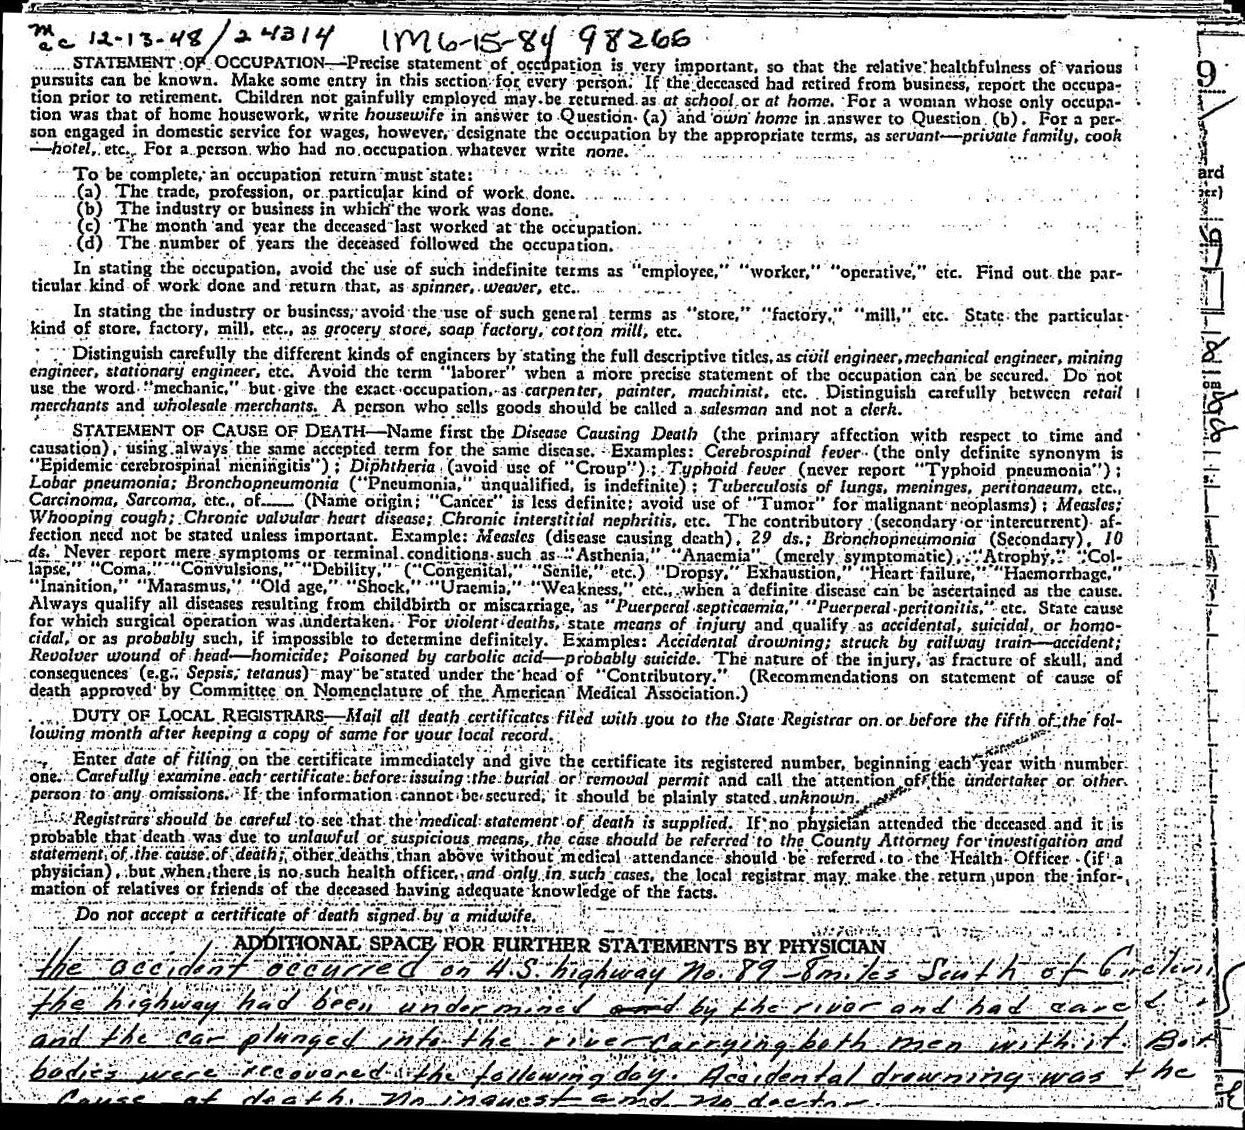 12-13-48/24314 1M6-15-84 98266
STATEMENT OF OCCUPATION—Precise statement of occupation is very important, so that the relative healthfulness of various
pursuits can be known. Make some entry in this section for every person. If the deceased had retired from business, report the occupa-
tion prior to retirement. Children not gainfully employed may be returned as at school or at home. For a woman whose only occupa-
tion was that of home housework, write housewife in answer to Question (a) and own home in answer to Question (b). For a per-
son engaged in domestic service for wages, however, designate the occupation by the appropriate terms, as servant—private family, cook
—hotel, etc. For a person who had no occupation whatever write none.
To be complete, an occupation return must state:
(a) The trade, profession, or particular kind of work done.
(b) The industry or business in which the work was done.
(c) The month and year the deceased last worked at the occupation.
(d) The number of years the deceased followed the occupation.
In stating the occupation, avoid the use of such indefinite terms as "employee," "worker," "operative," etc. Find out the par-
ticular kind of work done and return that, as spinner, weaver, etc.
In stating the industry or business, avoid the use of such general terms as "store," "factory," "mill," etc. State the particular
kind of store, factory, mill, etc., as grocery store, soap factory, cotton mill, etc.
Distinguish carefully the different kinds of engineers by stating the full descriptive titles, as civil engineer, mechanical engineer, mining
engineer, stationary engineer, etc. Avoid the term "laborer" when a more precise statement of the occupation can be secured. Do not
use the word "mechanic," but give the exact occupation, as carpenter, painter, machinist, etc. Distinguish carefully between retail
merchants and wholesale merchants. A person who sells goods should be called a salesman and not a clerk.
STATEMENT OF CAUSE OF DEATH—Name first the Disease Causing Death (the primary affection with respect to time and
causation), using always the same accepted term for the same disease. Examples: Cerebrospinal fever (the only definite synonym is
"Epidemic cerebrospinal meningitis"); Diphtheria (avoid use of "Croup"); Typhoid fever (never report "Typhoid pneumonia");
Lobar pneumonia; Bronchopneumonia ("Pneumonia," unqualified, is indefinite); Tuberculosis of lungs, meninges, peritonaeum, etc.,
Carcinoma, Sarcoma, etc., of—— (Name origin; "Cancer" is less definite; avoid use of "Tumor" for malignant neoplasms); Measles;
Whooping cough; Chronic valvular heart disease; Chronic interstitial nephritis, etc. The contributory (secondary or intercurrent) af-
fection need not be stated unless important. Example: Measles (disease causing death), 29 ds.; Bronchopneumonia (Secondary), 10
ds. Never report mere symptoms or terminal conditions such as "Asthenia," "Anaemia" (merely symptomatic), "Atrophy," "Col-
lapse," "Coma," "Convulsions," "Debility," ("Congenital," "Senile," etc.) "Dropsy," Exhaustion," "Heart failure," "Haemorrhage,"
"Inanition," "Marasmus," "Old age," "Shock," "Uraemia," "Weakness," etc., when a definite disease can be ascertained as the cause.
Always qualify all diseases resulting from childbirth or miscarriage, as "Puerperal septicaemia," "Puerperal peritonitis," etc. State cause
for which surgical operation was undertaken. For violent deaths, state means of injury and qualify as accidental, suicidal, or homo-
cidal, or as probably such, if impossible to determine definitely. Examples: Accidental drowning; struck by railway train—accident;
Revolver wound of head—homicide; Poisoned by carbolic acid—probably suicide. The nature of the injury, as fracture of skull, and
consequences (e.g., Sepsis, tetanus) may be stated under the head of "Contributory." (Recommendations on statement of cause of
death approved by Committee on Nomenclature of the American Medical Association.)
DUTY OF LOCAL REGISTRARS—Mail all death certificates filed with you to the State Registrar on or before the fifth of the fol-
lowing month after keeping a copy of same for your local record.
Enter date of filing on the certificate immediately and give the certificate its registered number, beginning each year with number
one. Carefully examine each certificate before issuing the burial or removal permit and call the attention of the undertaker or other
person to any omissions. If the information cannot be secured, it should be plainly stated unknown.
Registrars should be careful to see that the medical statement of death is supplied. If no physician attended the deceased and it is
probable that death was due to unlawful or suspicious means, the case should be referred to the County Attorney for investigation and
statement of the cause of death; other deaths than above without medical attendance should be referred to the Health Officer (if a
physician), but when there is no such health officer, and only in such cases, the local registrar may make the return upon the infor-
mation of relatives or friends of the deceased having adequate knowledge of the facts.
Do not accept a certificate of death signed by a midwife.
ADDITIONAL SPACE FOR FURTHER STATEMENTS BY PHYSICIAN
the accident occurred on U.S. highway No. 89 - 8 miles South of
the highway had been undermined by the river and had caved
and the car plunged into the river carrying both men with it. Both
bodies were recovered the following day. Accidental drowning was the
Cause of death. No inquest and no doctor.